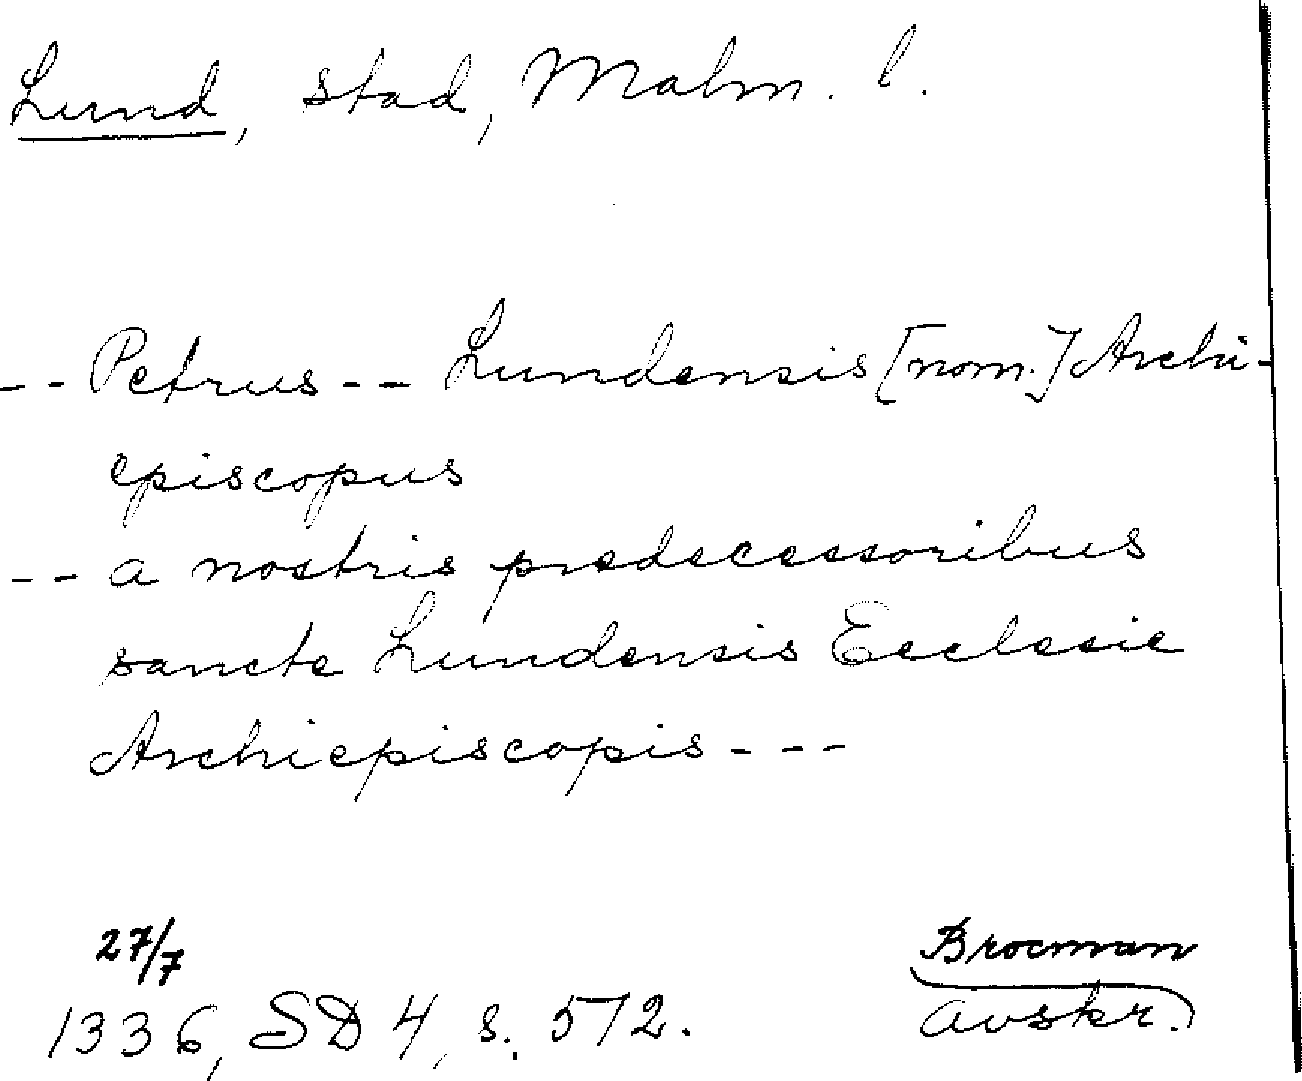 Lund, stad, Malm. l.
-- Petrus -- Lundensis [nom.] Archi-
episcopus
-- a nostris predecessoribus
sancte Lundensis Ecclesie
Archiepiscopis ---
27/7
Brocman
1336, SD 4, s. 572.
avskr.